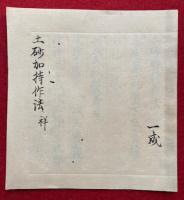 土砂加持作法 祥
一成